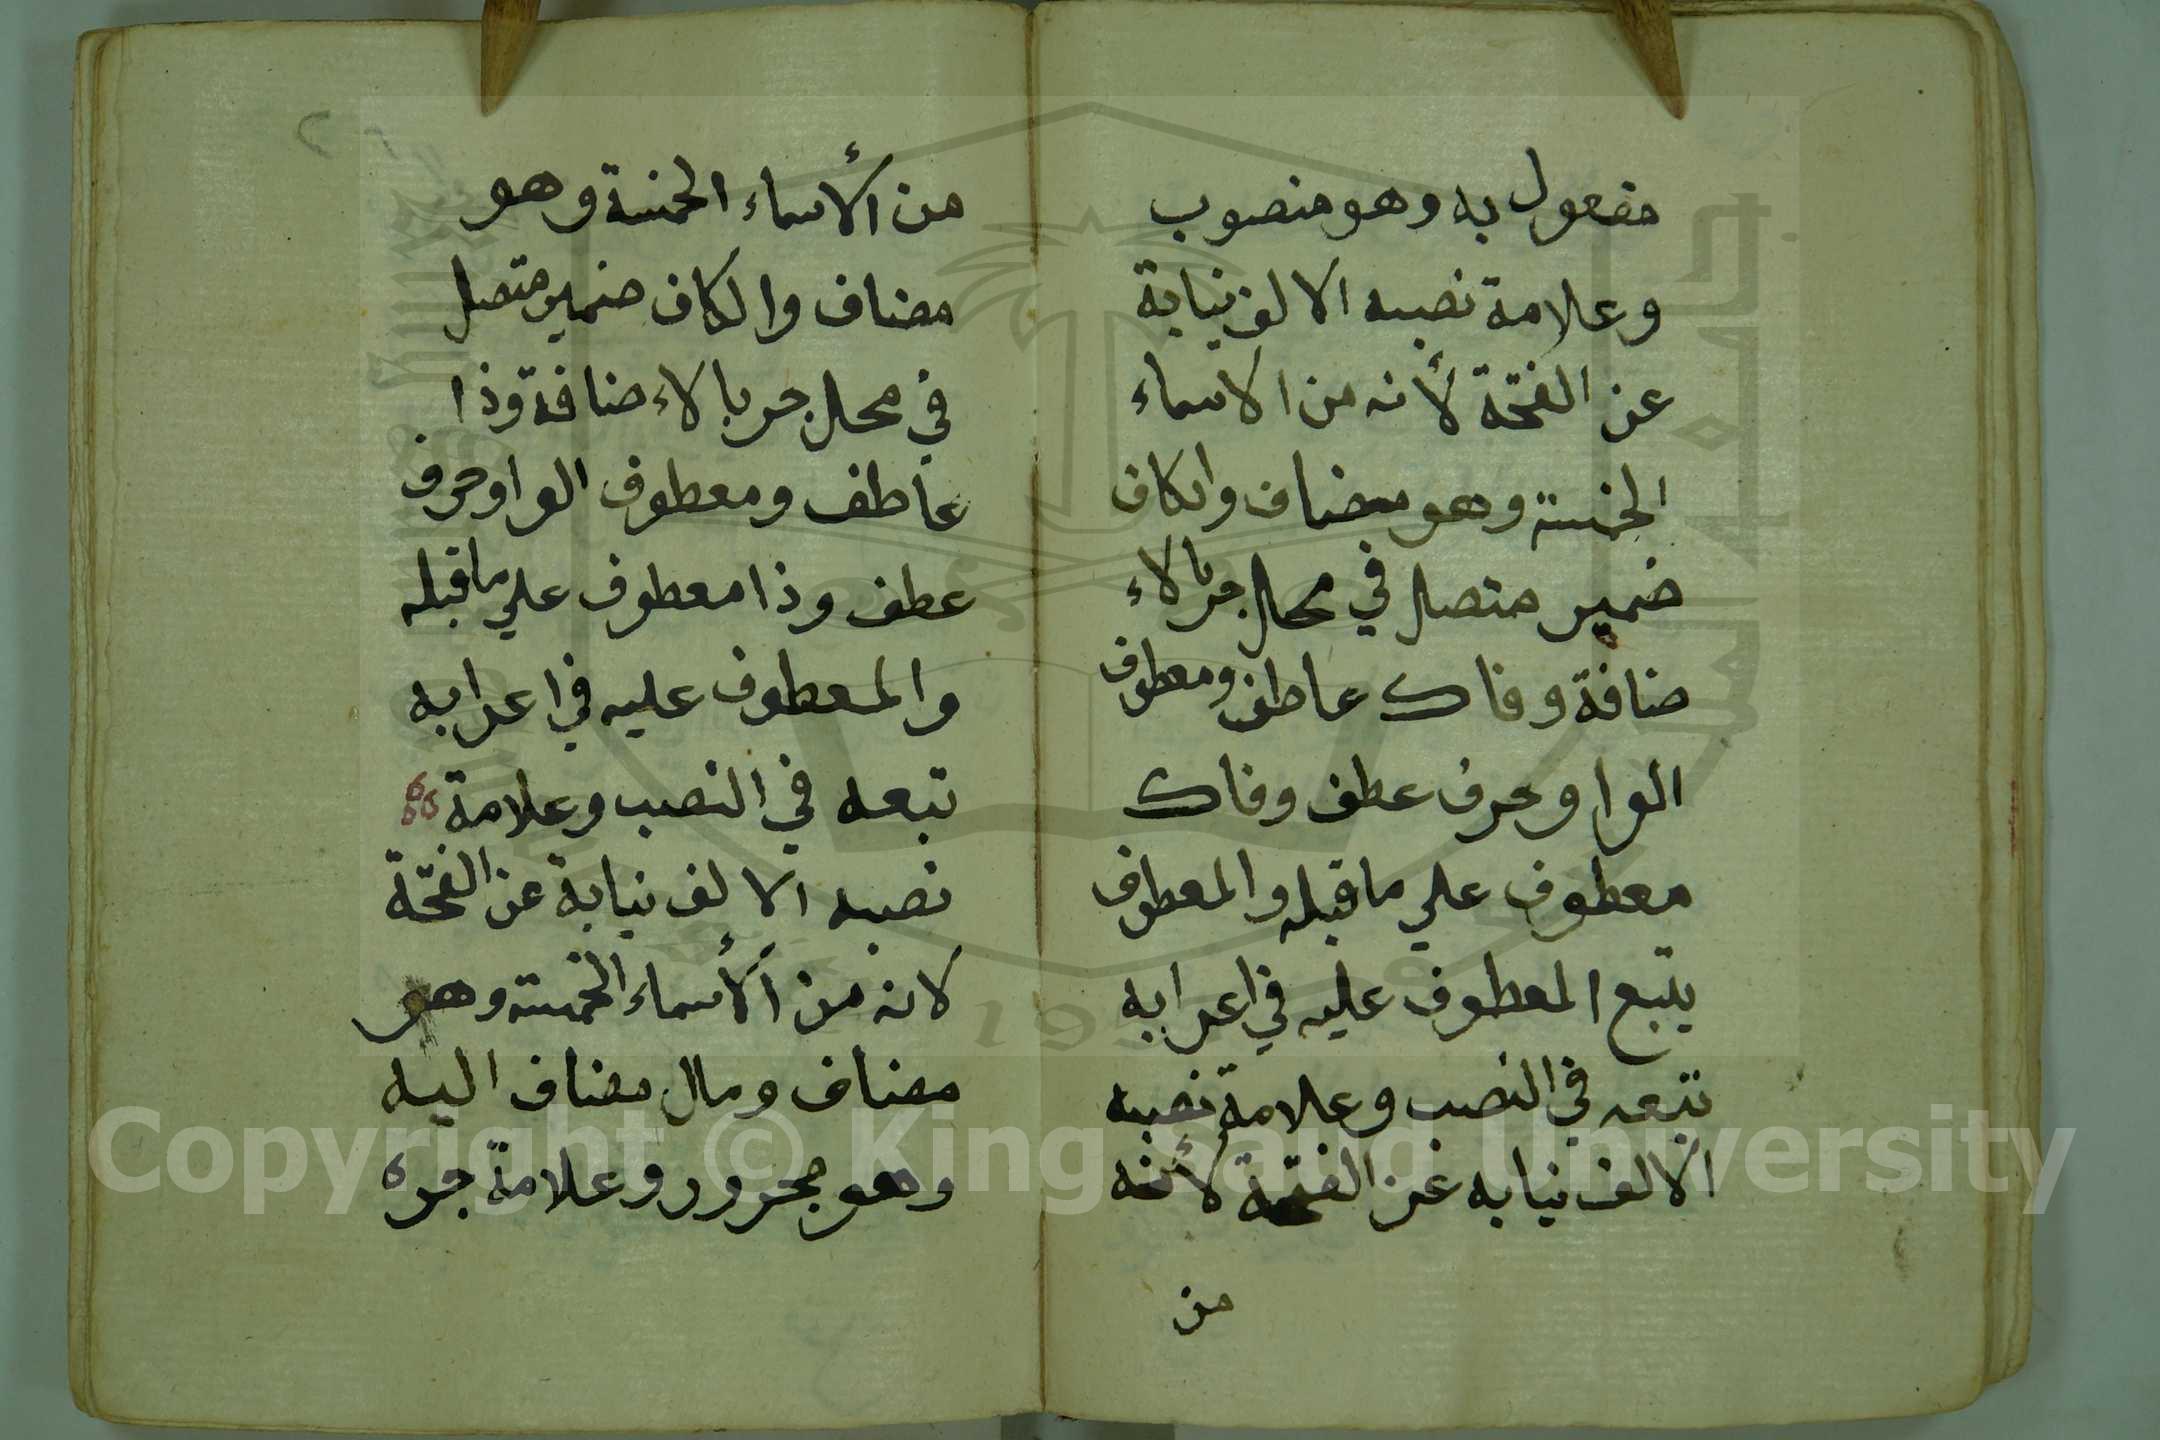 مفعول به وهو منصوب
وعلامة نصبه الالف نيابة
عن الفتحة لأنه من الاسماء
الخمسة وهو مضاف والكاف
ضمير متصل في محل جر بالاء
ضافة وفاك عاطف ومعطوف
الواو حرف عطف وفاك
معطوف علي ما قبله والمعطوف
يتبع المعطوف عليه في اعرابه
تبعه في النصب وعلامة نصبه
الالف نيابه عن الفتحة لأنه
من
من الأسماء الخمسة وهو
مضاف والكاف ضمير متصل
في محل جر بالاءضافة وذا
عاطف ومعطوف الواو حرف
عطف وذا معطوف علي ما قبله
والمعطوف عليه في اعرابه
تبعه في النصب وعلامة
نصبه الالف نيابة عن الفتحة
لانه من الأسماء الخمسة وهو
مضاف ومال مضاف اليه
وهو مجرور وعلامة جره
Copyright © King Saud University
1957